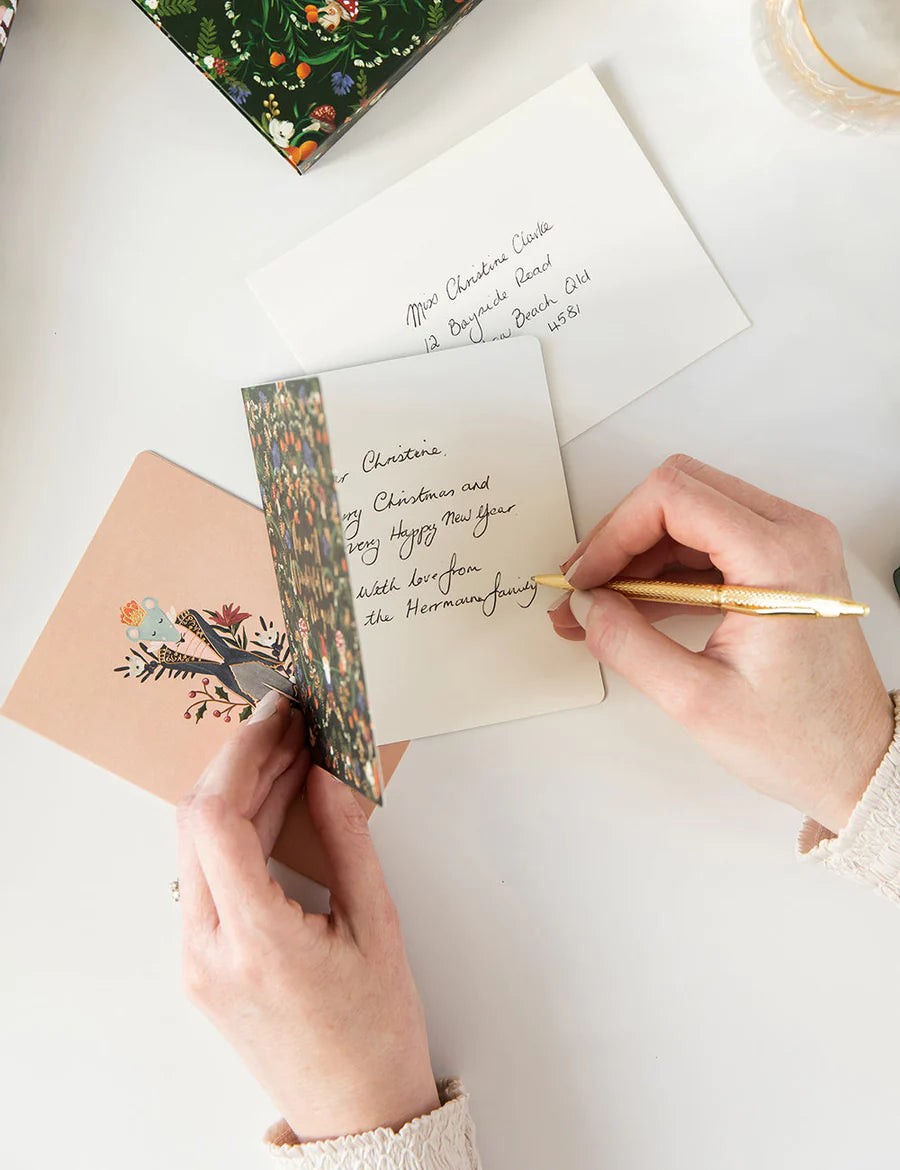 Miss Christine Clarke
12 Bayside Road
Beach Qld
4581
Christine,
Christmas and
very Happy New Year.
With love from
the Herrmann family